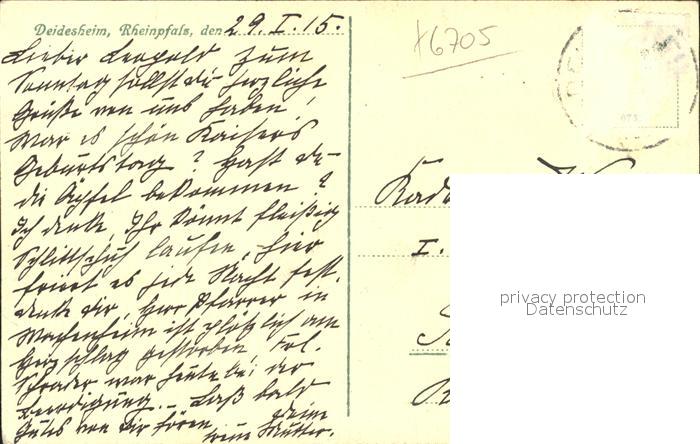 Deidesheim, Rheinpfalz, den 29. I. 15.
Lieber Leopold zum
Sonntag sollst du herzliche
Grüße von uns haben,
War es schön Kaisers
Geburtstag? Hast du
die Äpfel bekommen?
Ich denke, Ihr könnt fleißig
Schlittschuh laufen, hier
friert es jede Nacht fest.
denke dir, Herr Pfarrer in
Wachenheim ist plötzlich am
Herzschlag gestorben.
Schrader war heute bei der
Beerdigung. Laß bald
Gutes von dir hören
Deine
treue Mutter.
X6705
673
I.
privacy protection
Datenschutz